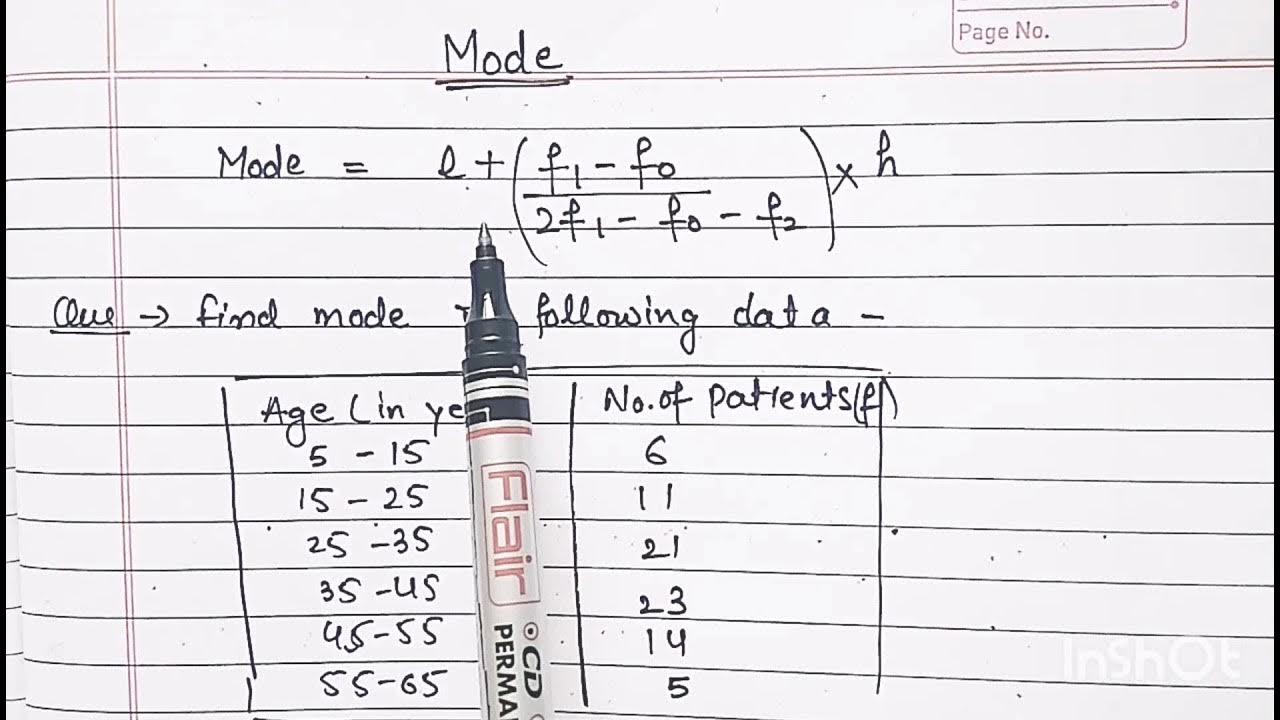 Page No.
Mode
Mode = l + ( f₁ - f₀ / 2f₁ - f₀ - f₂ ) × h
Que → find mode following data -
Age (in ye No. of patients (f)
5 - 15 6
15 - 25 11
25 - 35 21
35 - 45 23
45 - 55 14
55 - 65 5
Flair
CD
PERMA
InShOt